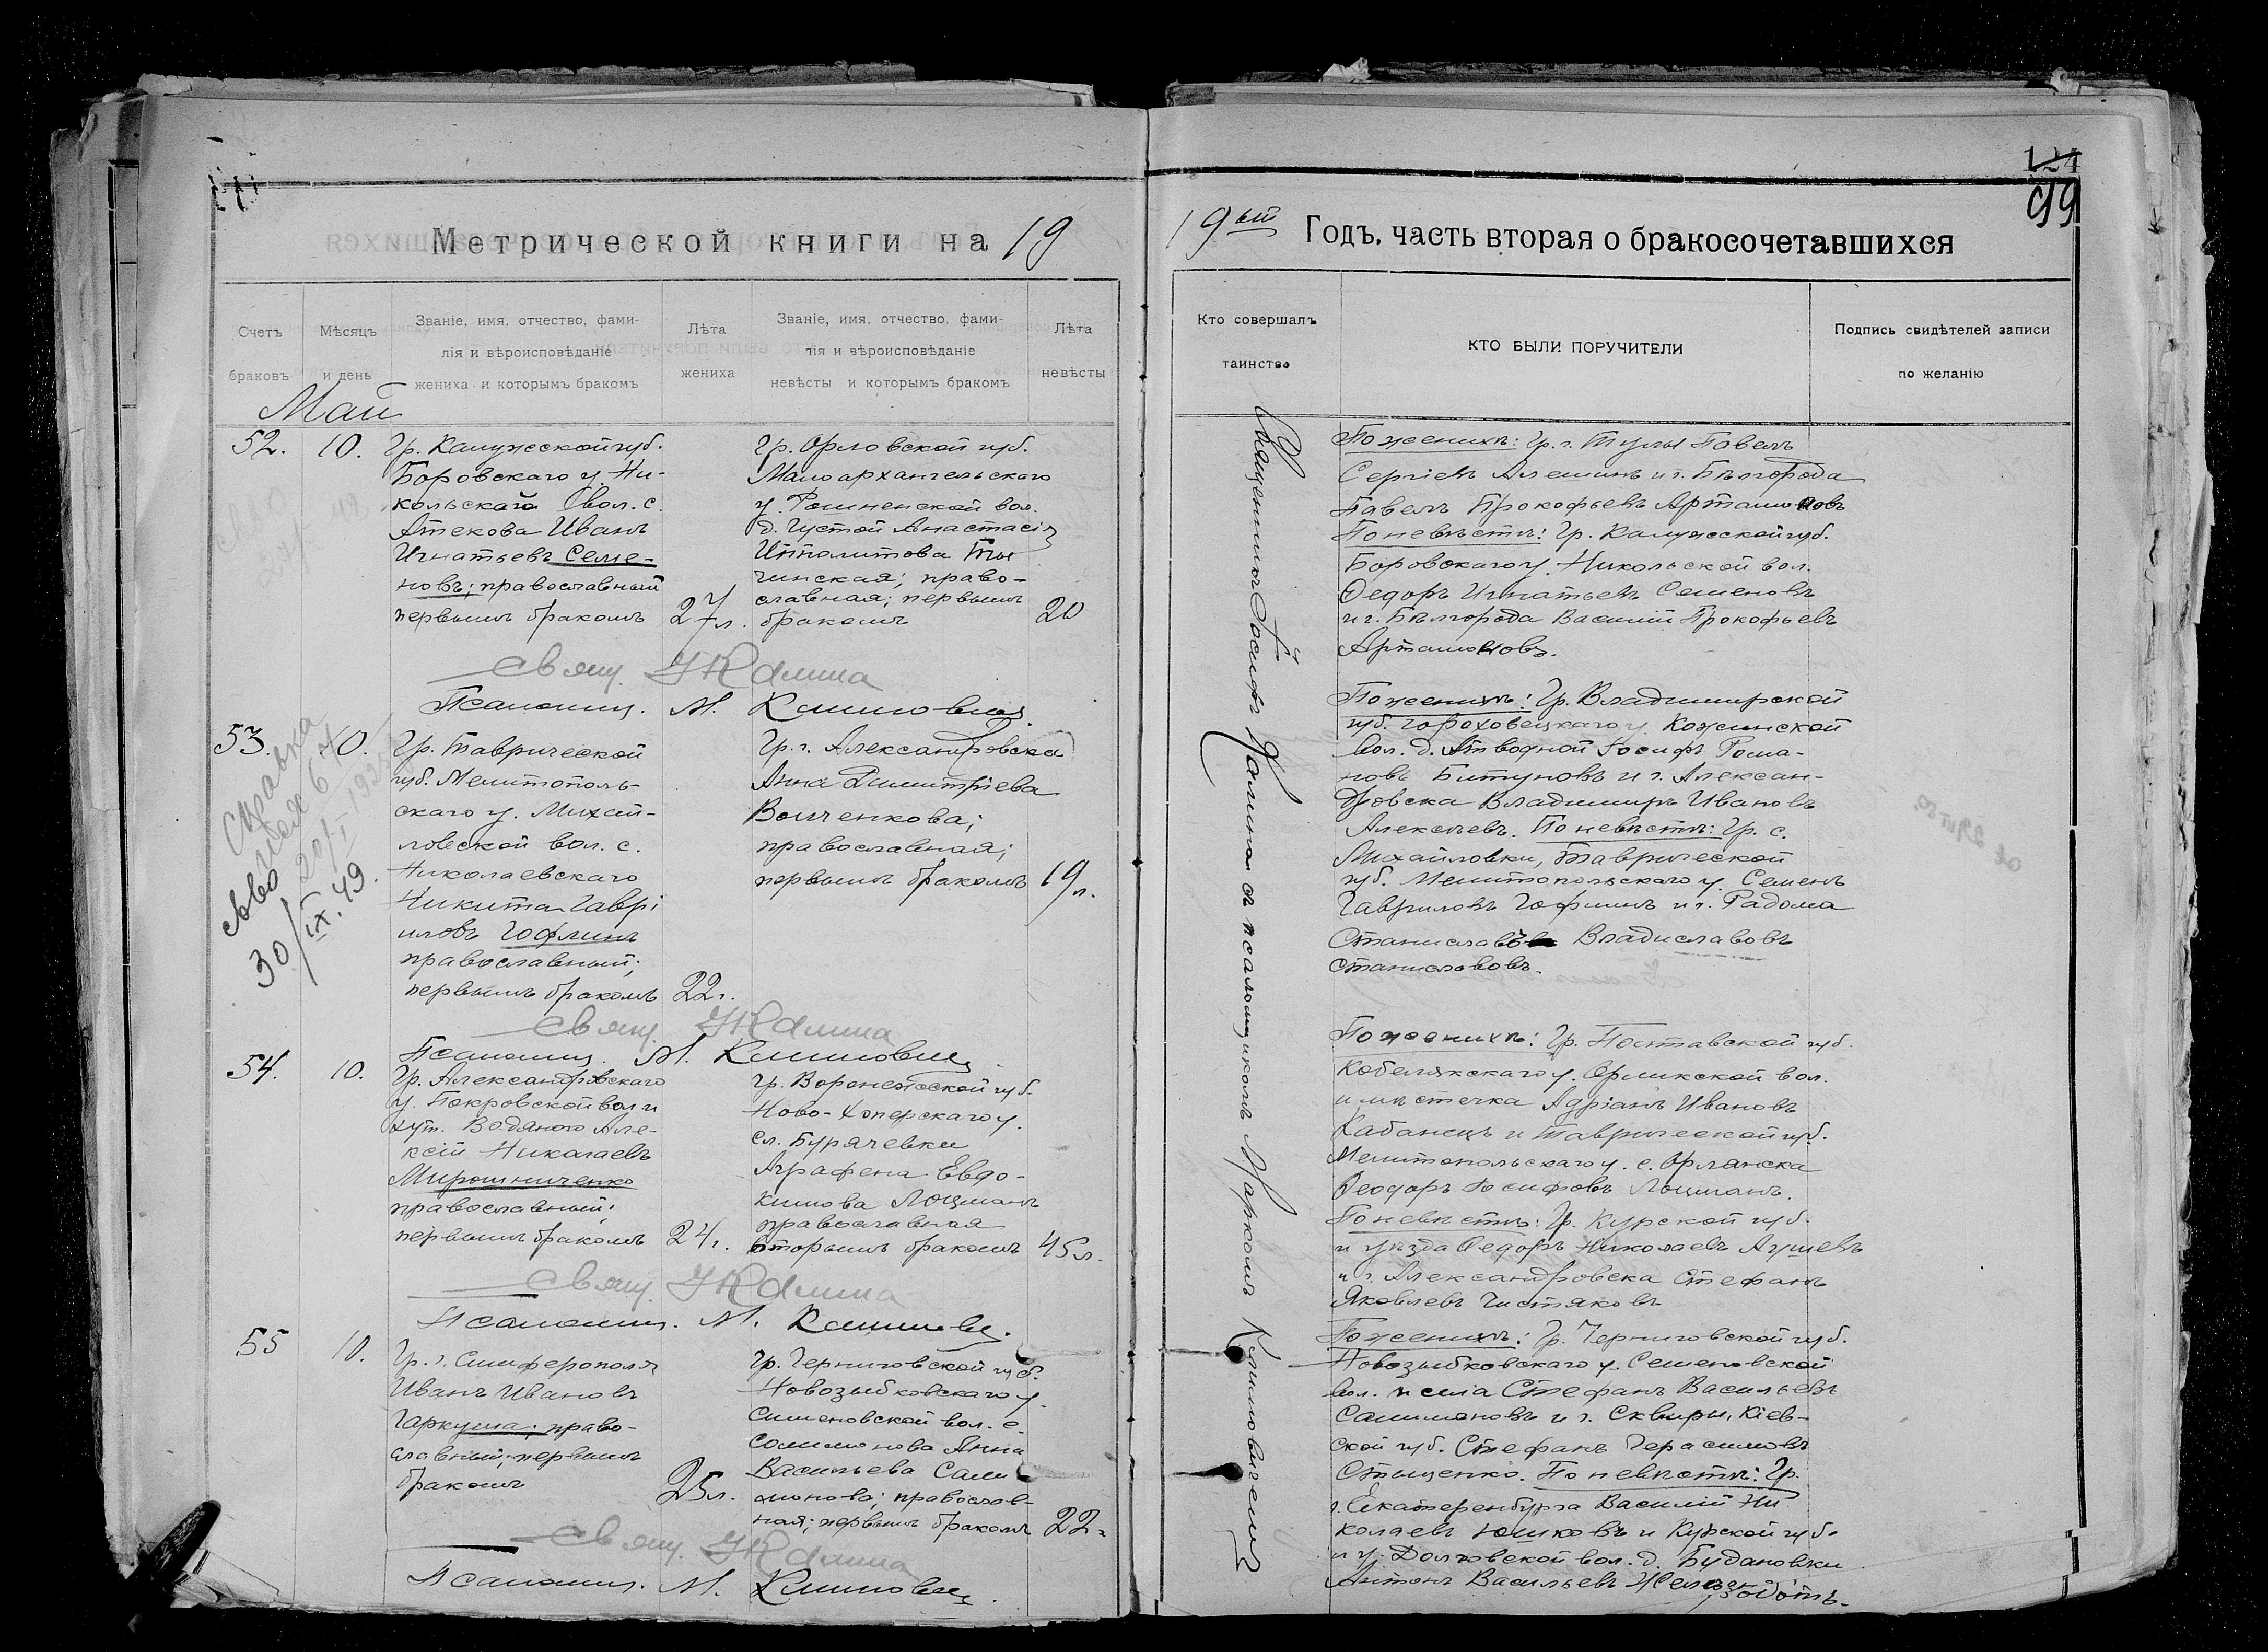 124
99
Метрической книги на 19
19ый Годъ, часть вторая о бракосочетавшихся
Счетъ браковъ
Мѣсяцъ и день
Званіе, имя, отчество, фами-
лія и вѣроисповѣданіе
жениха и которымъ бракомъ
Лѣта жениха
Званіе, имя, отчество, фами-
лія и вѣроисповѣданіе
невѣсты и которымъ бракомъ
Лѣта невѣсты
Кто совершалъ таинство
КТО БЫЛИ ПОРУЧИТЕЛИ
Подпись свидѣтелей записи
по желанію
Май
52.
10.
Гр. Калужской губ.
Боровскаго у. Ни-
кольской вол. с.
Атекова Иванъ
Игнатьевъ Семе-
новъ; православный
первымъ бракомъ
27 л.
Гр. Орловской губ.
Малоархангельскаго
у. вол.
д. Густой Анастасія
Ипполитова
православная; первымъ
бракомъ
20
Свящ. І Калина
Псаломщ. М. Климович
53.
10.
Гр. Таврической
губ. Мелитополь-
скаго у. Михай-
ловской вол. с.
Николаевскаго
Никита Гаврі
иловъ Гофлинъ
православный;
первымъ бракомъ
22 г.
Гр. г. Александровска
Анна Димитріева
Волченкова;
православная;
первымъ бракомъ
19 л.
Справка
30/IX.49.
Свящ. І Калина
Псаломщ. М. Климович
54.
10.
Гр. Александровскаго
у. Покровской вол. и
хут. Водяного Але-
ксій Николаевъ
Мирошниченко
православный;
первымъ бракомъ
24 г.
Гр. Воронежской губ.
Ново-Хоперскаго у.
сл. Бурячевки
Аграфена Евдо-
кимова Лоцманъ
православная
вторымъ бракомъ
45 л.
Свящ. І Калина
Псаломщ. М. Климович.
55
10.
Гр. г. Симферополя
Иванъ Ивановъ
Гаркуша; право-
славный; первымъ
бракомъ
25 л.
Гр. Черниговской губ.
Новозыбковскаго у.
Семеновской вол. с.
Солимонова Анна
Васильева Сали
монова; православ-
ная; первымъ бракомъ
22 г.
Свящ. І Калина
Псаломщ. М. Климович.
Священникъ Іосифъ Калина съ псаломщикомъ Маркомъ Климовичемъ
По женихѣ: Гр. г. Тулы Павелъ
Сергіевъ Алешинъ и г. Бѣлгорода
Павелъ Прокофьевъ Артамоновъ
По невѣстѣ: Гр. Калужской губ.
Боровскаго у. Никольской вол.
Ѳедоръ Игнатьевъ Семеновъ
и г. Бѣлгорода Василій Прокофьевъ
Артамоновъ.
По женихѣ: Гр. Владимирской
губ. Гороховецкаго у. Кожинской
вол. д. Іосифъ Рома-
новъ Битуновъ и г. Алексан-
дровска Владимиръ Ивановъ
Алексѣевъ. По невѣстѣ: Гр. с.
Михайловки, Таврической
губ. Мелитопольскаго у. Семенъ
Гавриловъ Гофлинъ и г. Радома
Станиславъ Владиславовъ
Станиславовъ.
По женихѣ: Гр. Полтавской губ.
Кобелякскаго у. Орликской вол.
и мѣстечка Адріанъ Ивановъ
Кабанецъ и Таврической губ.
Мелитопольскаго у. с. Орлянска
Ѳеодоръ Іосифовъ Лоцманъ.
По невѣстѣ: Гр. Курской губ.
и уѣзда Ѳедоръ Николаевъ
и г. Александровска Стефанъ
Яковлевъ Чистяковъ
По женихѣ: Гр. Черниговской губ.
Новозыбковскаго у. Семеновской
вол. и села Стефанъ Васильевъ
Салимоновъ и г. Сквиры, Кіев-
ской губ. Стефанъ Герасимовъ
Онищенко. По невѣстѣ: Гр.
г. Екатеренбурга Василій Ни
колаевъ Юшковъ и Курской губ.
и у. Долговской вол. д. Будановки
Антонъ Васильевъ